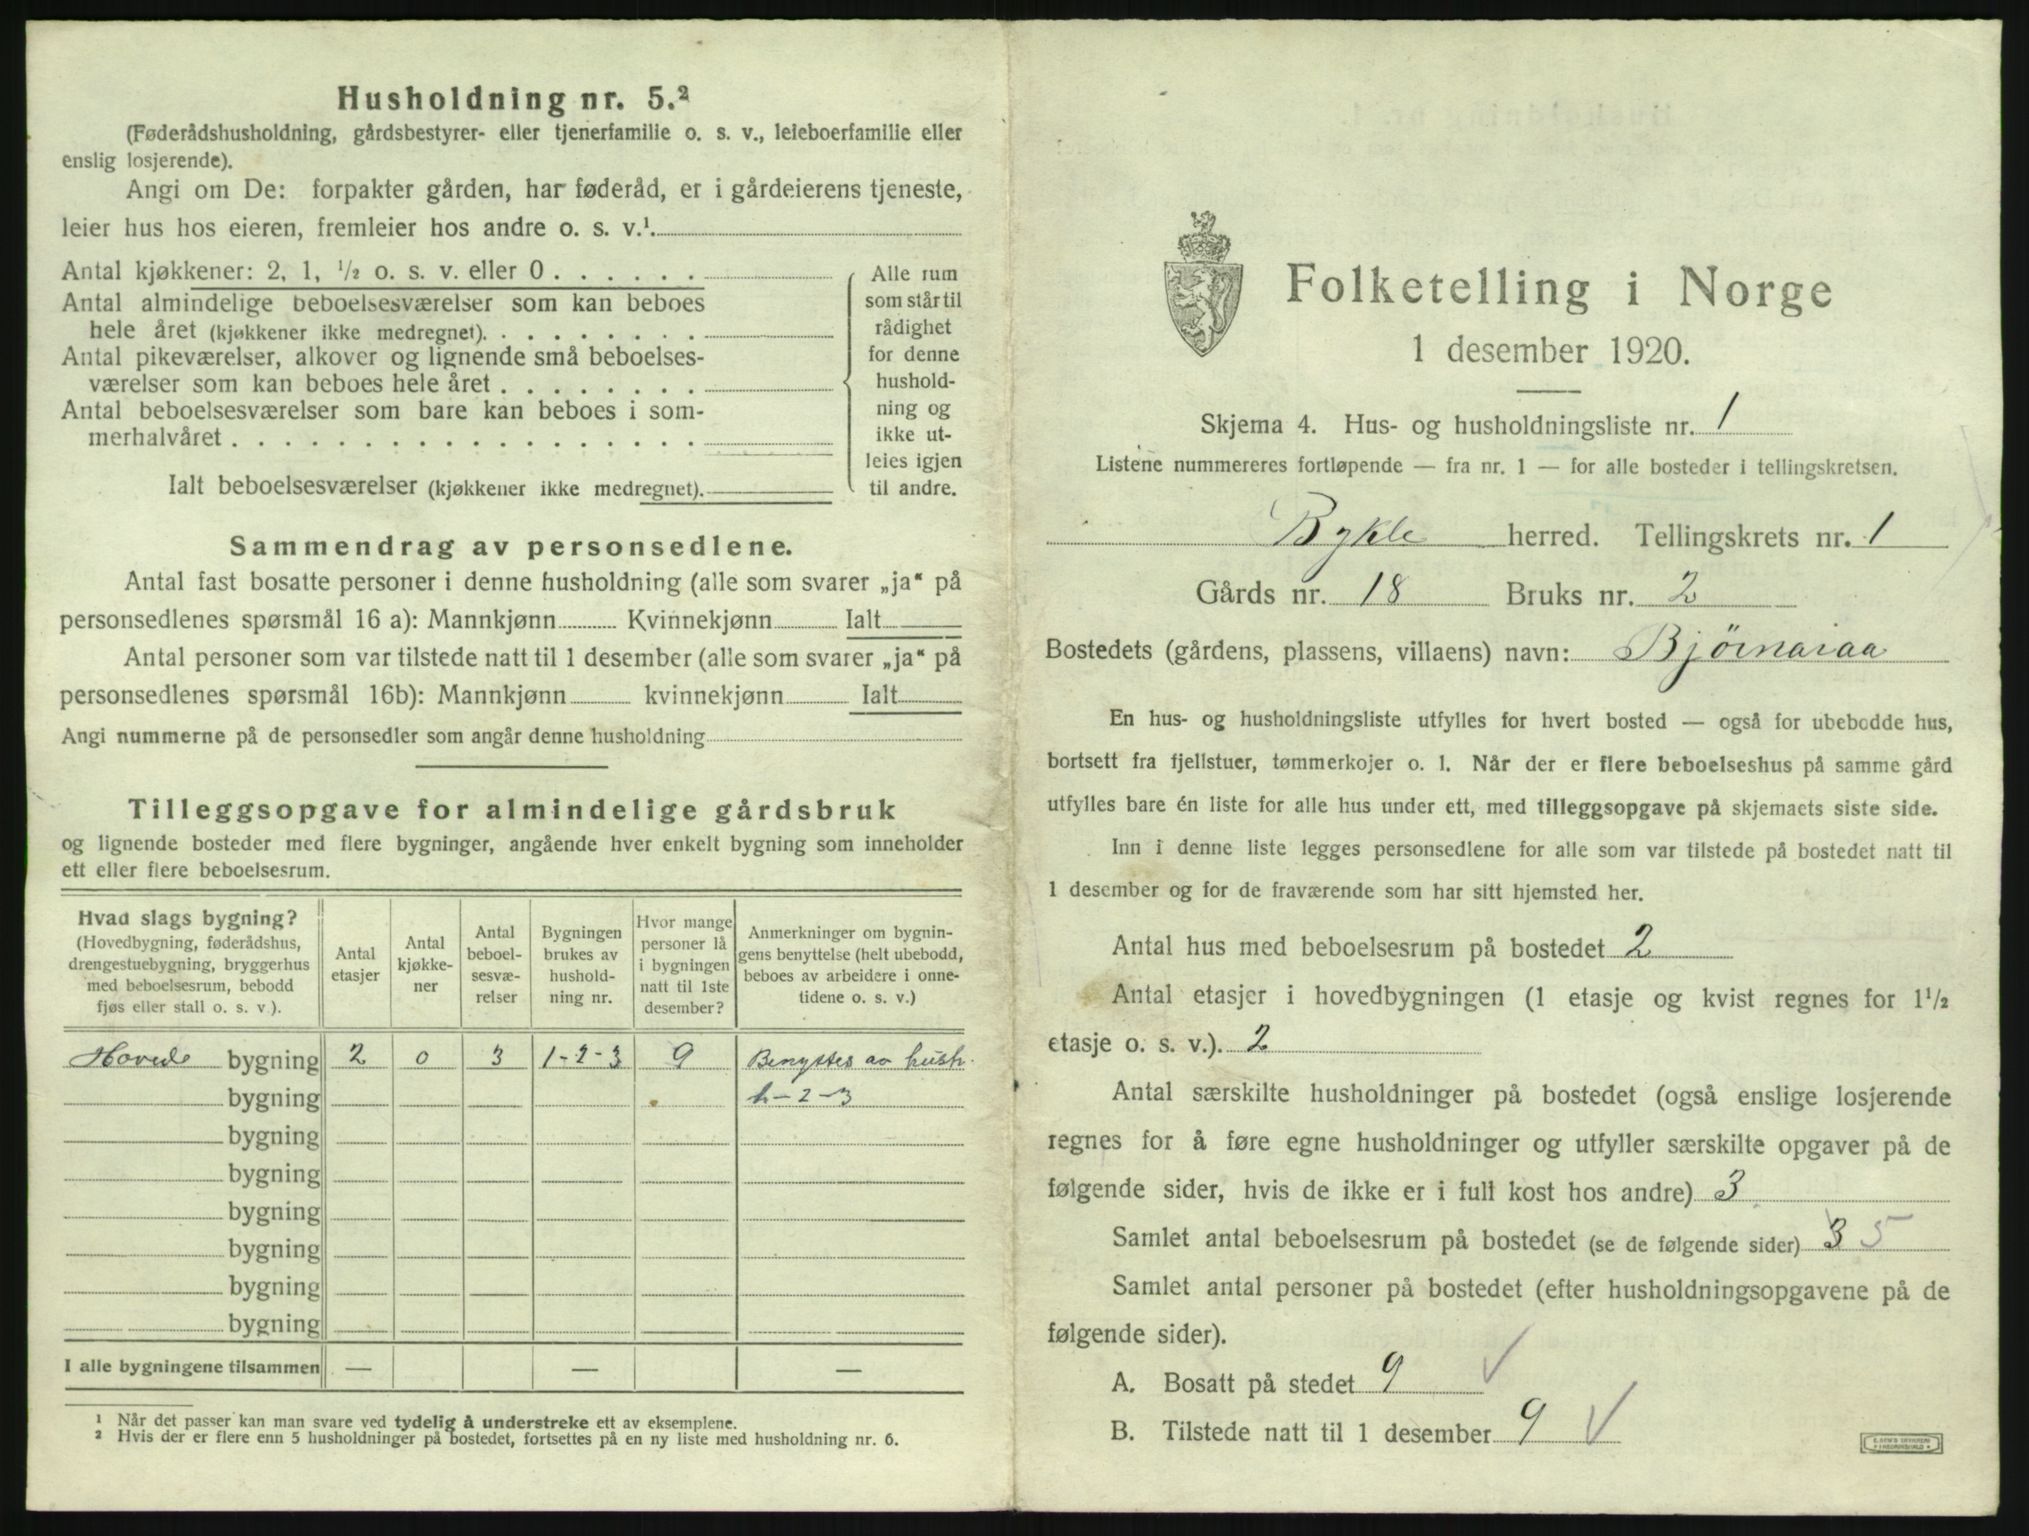 Husholdning nr. 5.²
(Føderådshusholdning, gårdsbestyrer- eller tjenerfamilie o. s. v., leieboerfamilie eller
enslig losjerende).
Angi om De: forpakter gården, har føderåd, er i gårdeierens tjeneste,
leier hus hos eieren, fremleier hos andre o. s. v.¹.
Antal kjøkkener: 2, 1, ½ o. s. v. eller 0 . . . . . .
Antal almindelige beboelsesværelser som kan beboes
hele året (kjøkkener ikke medregnet). . . . . . . . .
Antal pikeværelser, alkover og lignende små beboelses-
værelser som kan beboes hele året . . . . . . . .
Antal beboelsesværelser som bare kan beboes i som-
merhalvåret . . . . . . . . . . . . . . . . . .
Ialt beboelsesværelser (kjøkkener ikke medregnet).
Alle rum
som står til
rådighet
for denne
hushold-
ning og
ikke ut-
leies igjen
til andre.
Sammendrag av personsedlene.
Antal fast bosatte personer i denne husholdning (alle som svarer „ja“ på
personsedlenes spørsmål 16 a): Mannkjønn Kvinnekjønn Ialt
Antal personer som var tilstede natt til 1 desember (alle som svarer „ja“ på
personsedlenes spørsmål 16b): Mannkjønn kvinnekjønn Ialt
Angi nummerne på de personsedler som angår denne husholdning
Tilleggsopgave for almindelige gårdsbruk
og lignende bosteder med flere bygninger, angående hver enkelt bygning som inneholder
ett eller flere beboelsesrum.
Hvad slags bygning?
(Hovedbygning, føderådshus,
drengestuebygning, bryggerhus
med beboelsesrum, bebodd
fjøs eller stall o. s. v.).
Antal
etasjer
Antal
kjøkke-
ner
Antal
beboel-
sesvæ-
relser
Bygningen
brukes av
hushold-
ning nr.
Hvor mange
personer lå
i bygningen
natt til 1ste
desember?
Anmerkninger om bygnin-
gens benyttelse (helt ubebodd,
beboes av arbeidere i onne-
tidene o. s. v.)
Hovede bygning 2 0 3 1-2-3 9 Benyttes av hush.
bygning 1-2-3
bygning
bygning
bygning
bygning
bygning
bygning
I alle bygningene tilsammen — — —
¹ Når det passer kan man svare ved tydelig å understreke ett av eksemplene.
² Hvis der er flere enn 5 husholdninger på bostedet, fortsettes på en ny liste med husholdning nr. 6.
Folketelling i Norge
1 desember 1920.
Skjema 4. Hus- og husholdningsliste nr. 1
Listene nummereres fortløpende — fra nr. 1 — for alle bosteder i tellingskretsen.
Bykle herred. Tellingskrets nr. 1
Gårds nr. 18 Bruks nr. 2
Bostedets (gårdens, plassens, villaens) navn: Bjørnaraa
En hus- og husholdningsliste utfylles for hvert bosted — også for ubebodde hus,
bortsett fra fjellstuer, tømmerkojer o. l. Når der er flere beboelseshus på samme gård
utfylles bare én liste for alle hus under ett, med tilleggsopgave på skjemaets siste side.
Inn i denne liste legges personsedlene for alle som var tilstede på bostedet natt til
1 desember og for de fraværende som har sitt hjemsted her.
Antal hus med beboelsesrum på bostedet 2
Antal etasjer i hovedbygningen (1 etasje og kvist regnes for 1½
etasje o. s. v.). 2
Antal særskilte husholdninger på bostedet (også enslige losjerende
regnes for å føre egne husholdninger og utfyller særskilte opgaver på de
følgende sider, hvis de ikke er i full kost hos andre) 3
Samlet antal beboelsesrum på bostedet (se de følgende sider) 3 5
Samlet antal personer på bostedet (efter husholdningsopgavene på de
følgende sider).
A. Bosatt på stedet 9
B. Tilstede natt til 1 desember 9